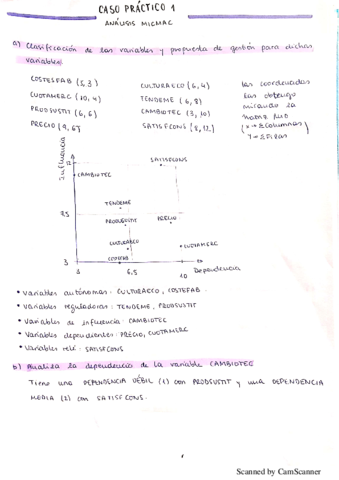 CASO PRÁCTICO 1
ANÁLISIS MICMAC
a) Clasificación de las variables y propuesta de gestión para dichas
variables:
COSTEFAB (5,3)
CUOTAMERC (10,4)
PRODSUSTIT (6,6)
PRECIO (9,6)
CULTURAECO (6,4)
TENDEME (6,8)
CAMBIOTEC (3,10)
SATISFCONS (8,12)
Las coordenadas
las obtengo
mirando la
matriz MID
(x → ΣColumnas)
Y → ΣFilas
Influencia
12
SATISFCONS
CAMBIOTEC
TENDEME
7,5
PRODSUSTIT
PRECIO
CULTURAECO
CUOTAMERC
COSTEFAB
3
3
6,5
10
Dependencia
• Variables autónomas: CULTURAECO, COSTEFAB
• Variables reguladoras: TENDEME, PRODSUSTIT
• Variables de influencia: CAMBIOTEC
• Variables dependientes: PRECIO, CUOTAMERC
• Variables relé: SATISFCONS
b) Analiza la dependencia de la variable CAMBIOTEC
Tiene una DEPENDENCIA DÉBIL (1) con PRODSUSTIT y una DEPENDENCIA
MEDIA (2) con SATISFCONS.
Scanned by CamScanner